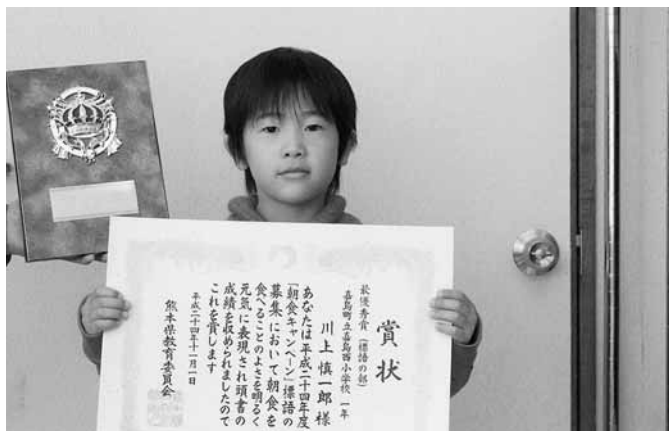 賞状
最優秀賞(標語の部)
嘉島町立嘉島西小学校 一年
川上慎一郎 様
あなたは平成二十四年度
「朝食キャンペーン」標語の
募集において朝食を
食べることのよさを明るく
元気に表現され頭書の
成績を収められましたので
これを賞します
平成二十四年十一月一日
熊本県教育委員会